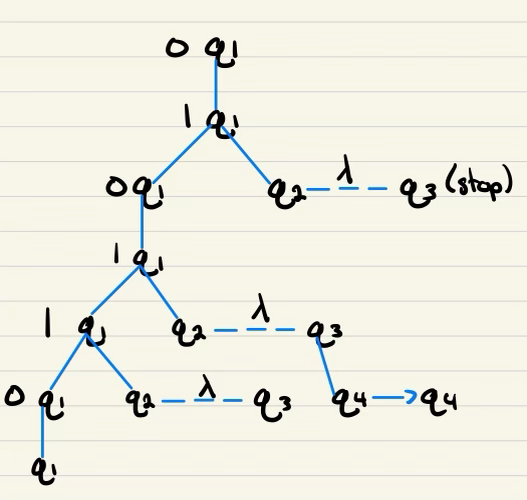 0 q1
1 q1
0 q1 q2 λ q3 (stop)
1 q1
1 q1 q2 λ q3
0 q1 q2 λ q3 q4 q4
q1